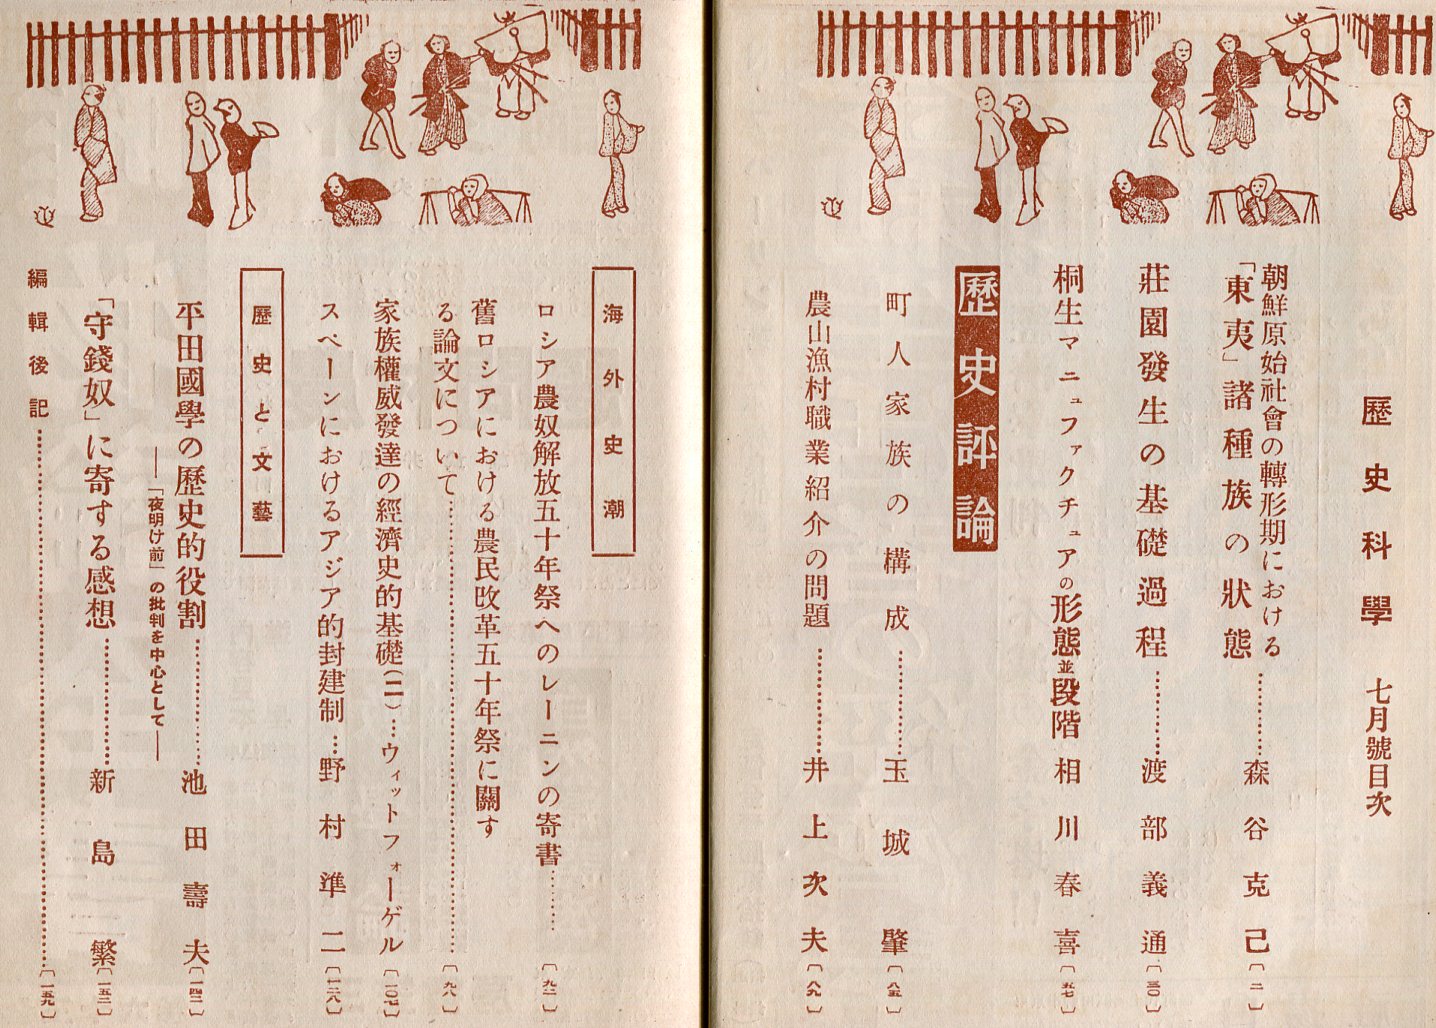 歷史科學 七月號目次
朝鮮原始社會の轉形期における
「東夷」諸種族の狀態…………森谷克己〔二〕
莊園發生の基礎過程…………渡部義通〔三〇〕
桐生マニュファクチュアの形態並段階 相川春喜〔五七〕
歷史評論
町人家族の構成…………玉城肇〔八五〕
農山漁村職業紹介の問題…………井上次夫〔八九〕
海外史潮
ロシア農奴解放五十年祭へのレーニンの寄書………〔九二〕
舊ロシアにおける農民改革五十年祭に關す
る論文について…………〔九八〕
家族權威發達の經濟史的基礎(二)…ウィットフォーゲル〔一〇四〕
スペーンにおけるアジア的封建制…野村準二〔一二八〕
歷史と文藝
平田國學の歷史的役割…………池田壽夫〔一四二〕
――「夜明け前」の批判を中心として――
「守錢奴」に寄する感想…………新島繁〔一五二〕
編輯後記…………〔一五九〕